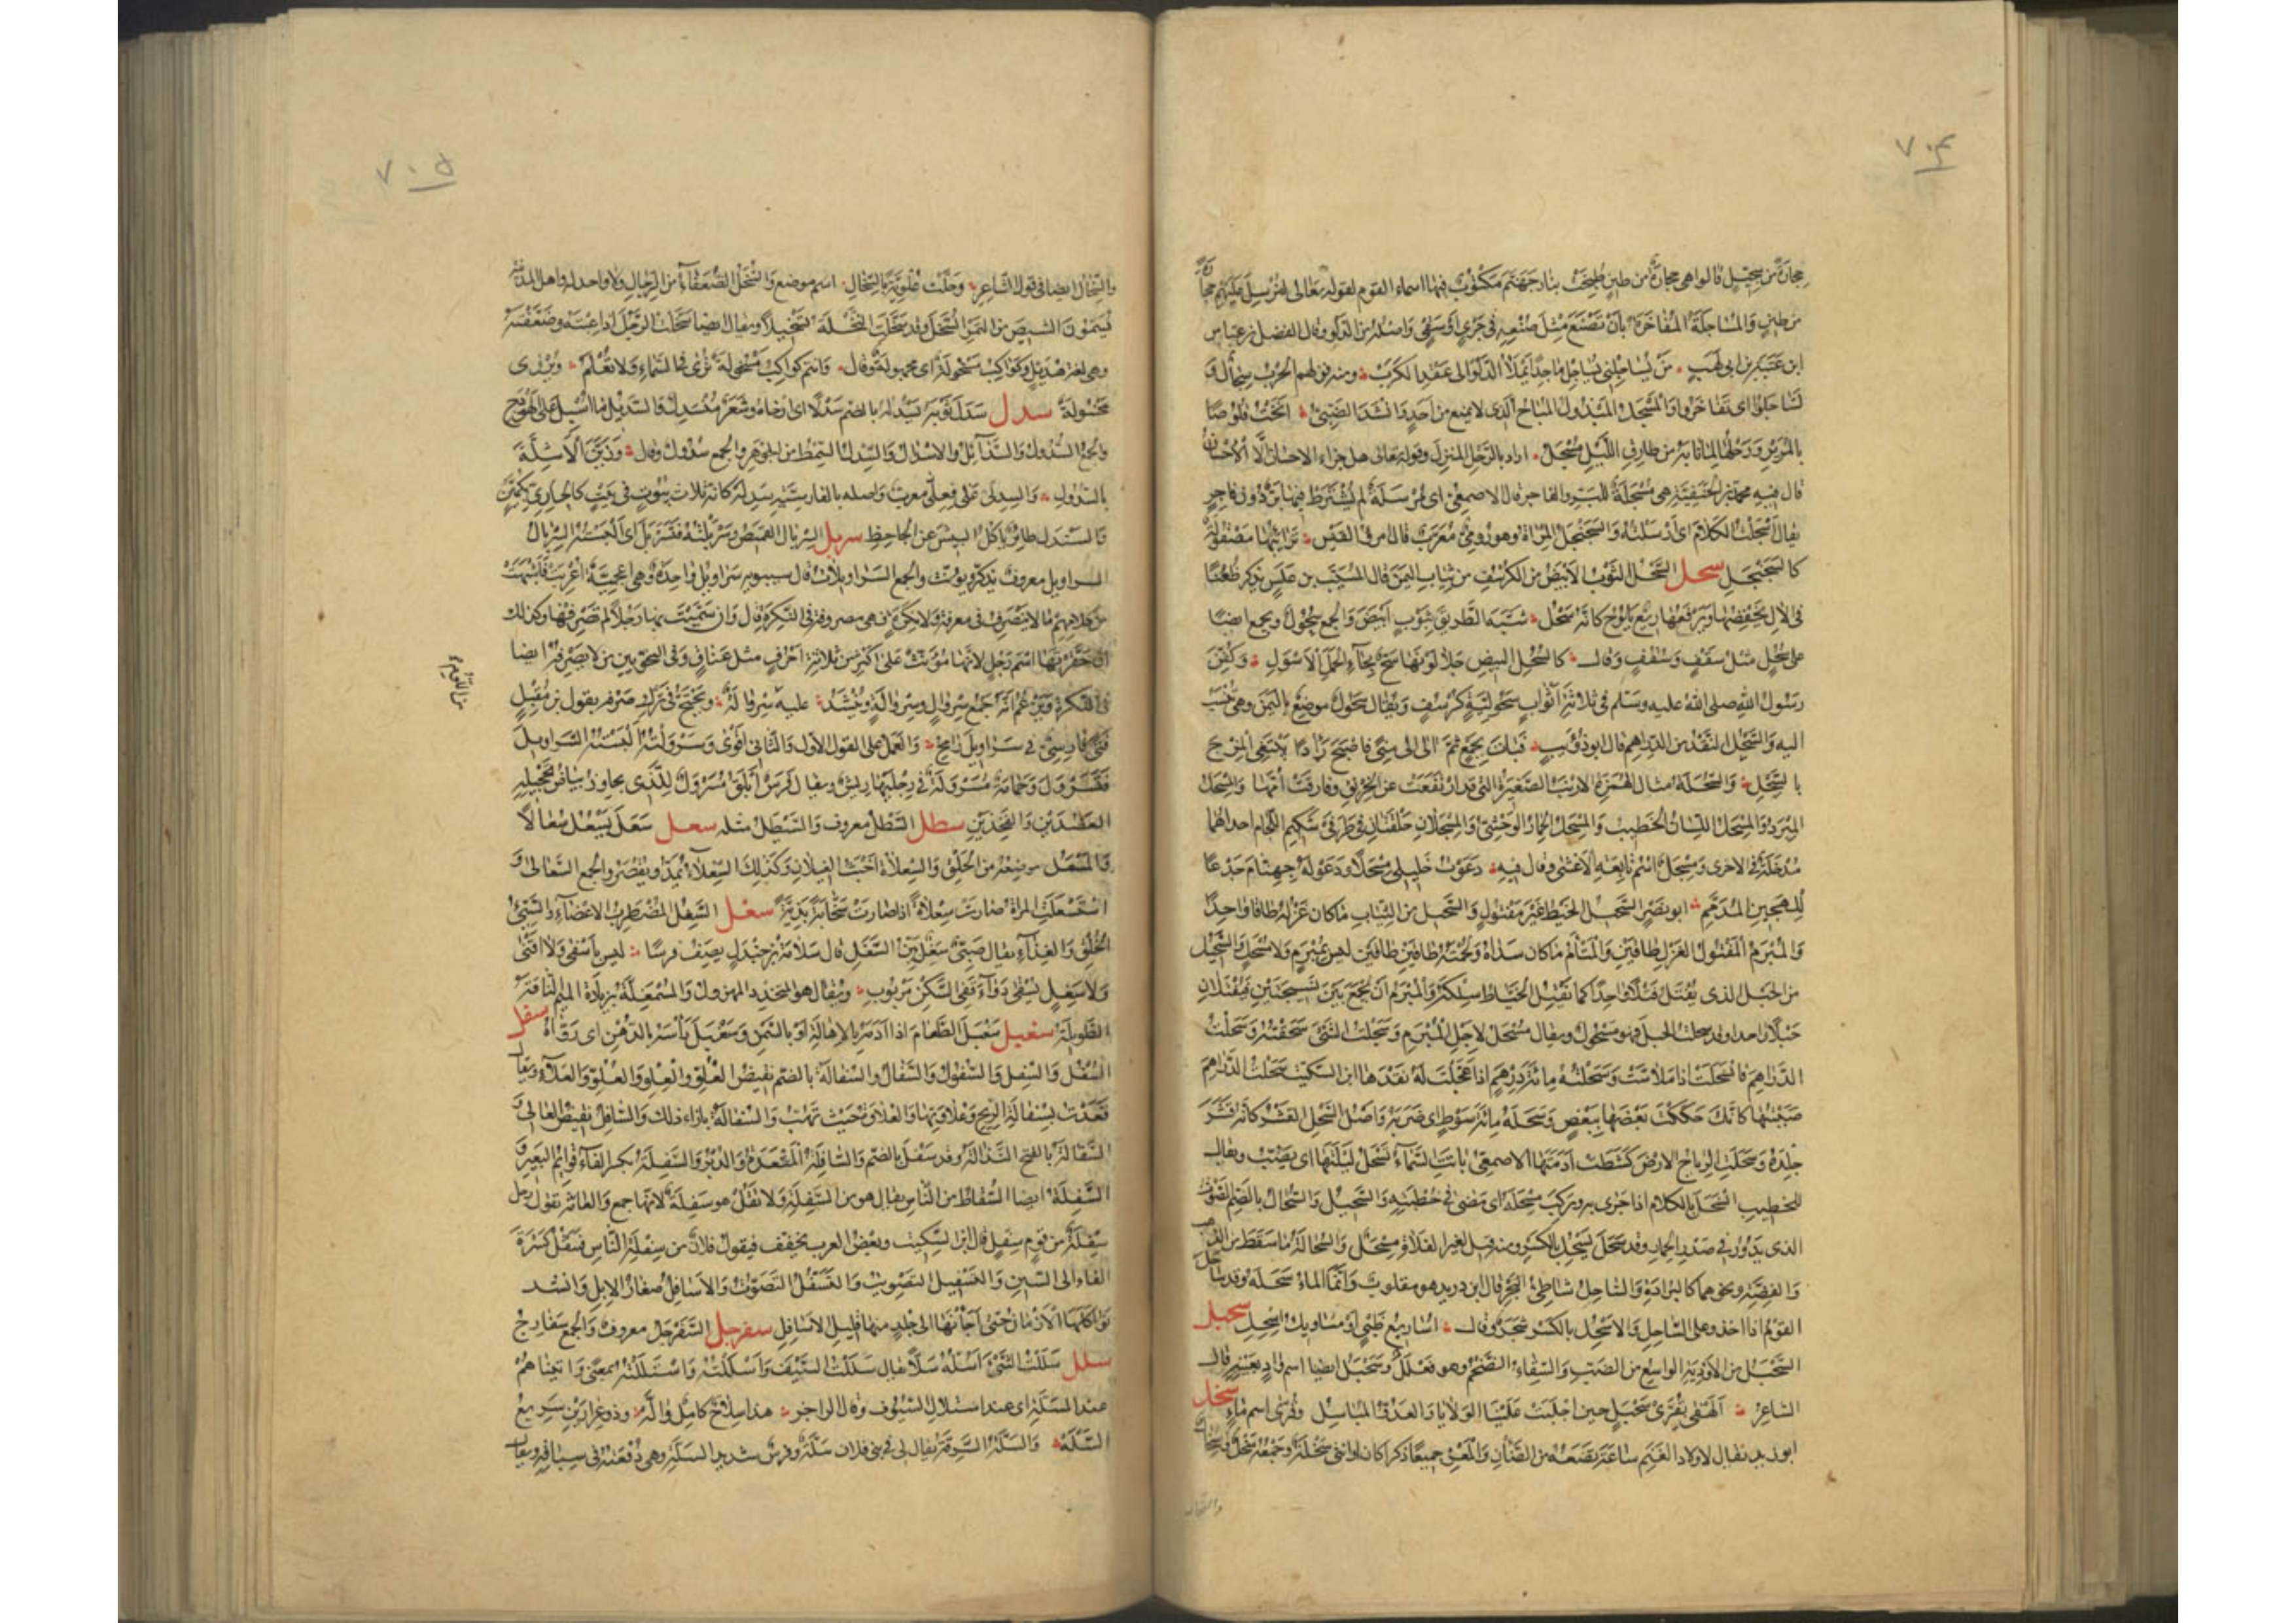 ٧٠٤
حجارة من سجيل قالوا هي حجارة من طين طبخت بنار جهنم مكتوب فيها اسماء القوم لقوله تعالى لنرسل عليهم حجارة
من طين والمساجلة المفاخرة بان تصنع مثل صنعه في جري او سقي واصله من الدلو وقال الفضل بن عباس
ابن عتبة بن ابي لهب من يساجلني يساجل ماجدا يملأ الدلو الى عقد الكرب ومنه قولهم الحرب سجال و
تساجلوا اى تفاخروا والمسجل المبذول المباح الذى لا يمنع من احد وانشد الضبي انخت قلوصا
بالمرير ورحلها لما نابه من طارق الليل مسجل اراد بالرحل المنزل وقوله تعالى هل جزاء الاحسان الا الاحسان
قال فيه محمد بن الحنفية هى مسجلة للبر والفاجر قال الاصمعى اى مرسلة لم يشترط فيها بر دون فاجر
يقال اسجلت الكلام اى ارسلته والسجنجل المرآة وهو رومى معرب قال امرؤ القيس ترائبها مصقولة
كالسجنجل سحل السحل الثوب الابيض من الكرسف من ثياب اليمن قال المسيب بن علس يذكر ظعنا
فى الآل يخفضها ويرفعها ريع يلوح كانه سحل شبه الطريق بثوب ابيض والجمع سحول ويجمع ايضا
على سحل مثل سقف وسقف وقال كالسحل البيض جلا لونها سح نجاء الحمل الاسول وكفن
رسول الله صلى الله عليه وسلم فى ثلاثة اثواب سحولية كرسف ويقال سحول موضع باليمن وهى تنسب
اليه والسحل النقد من الدراهم قال ابو ذؤيب فبات بجمع ثم الى الى منى فاصبح رادا يبتغى المزج
بالسحل والسحلة مثال الهمزة الارنب الصغيرة التى قد ارتفعت عن الخرنق وفارقت امها والمسحل
المبرد والمسحل اللسان الخطيب والمسحل الحمار الوحشى والمسحلان حلقتان فى طرفى شكيم اللجام احداهما
مدخلة فى الاخرى ومسحل اسم تابعة الاعشى وقال فيه دعوت خليلى مسحلا ودعوا له جهنام جدعا
للهجين المذمم ابو نصر السحيل الخيط غير مفتول والسحيل من الثياب ما كان غزله طاقا واحدا
والمبرم المفتول الغزل طاقين والمتآم ما كان سداه ولحمته طاقين طاقين ليس بمبرم ولا مسحل والسحيل
من الحبل الذى يفتل فتلا واحدا كما يفتل الخياط سلكه والمبرم ان يجمع بين نسيجتين فتفتلان
حبلا واحدا وقد سحلت الحبل فهو مسحول ويقال مسحل لاجل المبرم وسحلت الشئ سحقته وسحلت
الدراهم فانسحلت اذا ملاست وسحلته مائة درهم اذا عجلت له نقدها ابن السكيت سحلت الدراهم
صببتها كانك حككت بعضها ببعض وسحله مائة سوط اى ضربه واصل السحل القشر كانه قشر
جلده وسحلت الرياح الارض كشطت ادمتها الاصمعى باتت السماء تسحل ليلتها اى تصب ويقال
للخطيب انسحل بالكلام اذا جرى به وركب مسحله اى مضى فى خطبته والسحيل والسحال بالضم الصوت
الذى يدور فى صدر الحمار وقد سحل يسحل بالكسر ومنه قيل لعير الفلاة مسحل والسحالة ما سقط من الذهب
والفضة ونحوهما كالبرادة والساحل شاطئ البحر قال ابن دريد هو مقلوب وانما الماء سحله وقد ساحل
القوم اذا اخذوا على الساحل والاسحل بالكسر شجر وقال اساريع ظبى او مساويك اسحل سحبل
السحبل من الاودية الواسع من الضب والسقاء الضخم وهو فعلل وسحبل ايضا اسم واد بعينه قال
الشاعر الهفى بقرى سحبل حين اجلبت علينا الولايا والعدو المباسل وقرى اسم ماء سخل
ابو زيد يقال لاولاد الغنم ساعة تضعه من الضأن والمعز جميعا ذكرا كان او انثى سخلة وجمعه سخل وسخال
والسخال
٧٠٥
والسخال ايضا فى قول الشاعر وحلت علوية بالسخال اسم موضع والسخل الضعفاء من الرجال ولا واحد له واهل المدينة
يسمون الشيص من التمر السخل وقد سخلت النخلة تسخيلا ويقال ايضا سخلت الرجل اذا عبته وضعفته
وهى لغة هذيل وكواكب مسخولة اى مجهولة وقال وانتم كواكب مسخولة ترى فى السماء ولا تعلم ويروى
مخسولة سدل سدل ثوبه يسدله بالضم سدلا اى ارخاه وشعر منسدل والسديل ما اسبل على الهودج
والجمع السدول والسدائل والاسدال والسدل السمط من الجوهر والجمع سدول وقال وزين الاشلة
بالسدول والسدلى على فعلى معرب واصله بالفارسية سه دله كانه ثلاث بيوت فى بيت كالحارى بكمين
والسندل طائر ياكل البيش عن الجاحظ سربل السربال القميص وسربلته فتسربل اى البسته السربال
السراويل معروف يذكر ويؤنث والجمع السراويلات قال سيبويه سراويل واحدة وهى اعجمية اعربت فاشبهت
من كلامهم ما لا ينصرف فى معرفة ولا نكرة فهى مصروفة فى النكرة قال وان سميت بها رجلا لم تصرفها وكذلك
ان حقرتها اسم رجل لانها مؤنث على اكثر من ثلاثة احرف مثل عناق وفى النحويين من لا يصرفه ايضا
فى النكرة ويزعم انه جمع سروال وسروالة وينشد عليه سروالة ويحتج فى ترك صرفه بقول ابن مقبل
فتى فارسى فى سراويل رامح والعمل على القول الاول والثانى اقوى وسرولته البسته السراويل
فتسرول وحمامة مسرولة فى رجليها ريش ويقال فرس ابلق مسرول للذى يجاوز بياض تحجيله
العضدين والفخذين سطل السطل معروف والسيطل مثله سعل سعل يسعل سعالا
والمسعل موضعه من الحلق والسعلاة اخبث الغيلان وكذلك السعلاء يمد ويقصر والجمع السعالى و
استسعلت المراة صارت سعلاة اذا صارت صخابة بذية سغل السغل المضطرب الاعضاء والسيئ
الخلق والغذاء يقال صبى سغل بين السغل قال سلامة بن جندل يصف فرسا ليس باسفى ولا اقنى
ولا سغل يسقى دواء قفى السكن مربوب ويقال هو المتخدد المهزول والمسمغلة بزيادة الميم الناقة
الطويلة سغبل سغبل الطعام اذا ادمه بالاهالة او بالسمن وسغبل رأسه بالدهن اى رواه سفل
السفل والسفل والسفول والسفال والسفالة بالضم نقيض العلو والعلو والعلو والعلاء ويقال
قعدت بسفالة الريح وعلاوتها والعلاوة حيث تهب والسفالة بازاء ذلك والسافل نقيض العالى و
السفالة بالفتح النذالة وقد سفل بالضم والسافلة المقعدة والدبر والسفلة بكسر الفاء قوائم البعير و
السفلة ايضا السقاط من الناس يقال هو من السفلة ولا تقل هو سفلة لانها جمع والعامة تقول رجل
سفلة من قوم سفل قال ابن السكيت وبعض العرب يخفف فيقول فلان من سفلة الناس فينقل كسرة
الفاء الى السين والتسفيل التصويب والتسفل التصوب والاسافل صغار الابل وانشد
تواكلها الازمان حتى اجأنها الى جلد منها قليل الاسافل سفرجل السفرجل معروف والجمع سفارج
سلل سللت الشئ اسله سلا يقال سللت السيف واسللته واستللته بمعنى واتيناهم
عند السلة اى عند استلال السيوف وقال الراجز هذا سلاح كامل واله وذو غرارين سريع
السله والسلة السرقة يقال لى فى بنى فلان سلة وفرس شديد السلة وهى دفعته فى سباقه ويقال